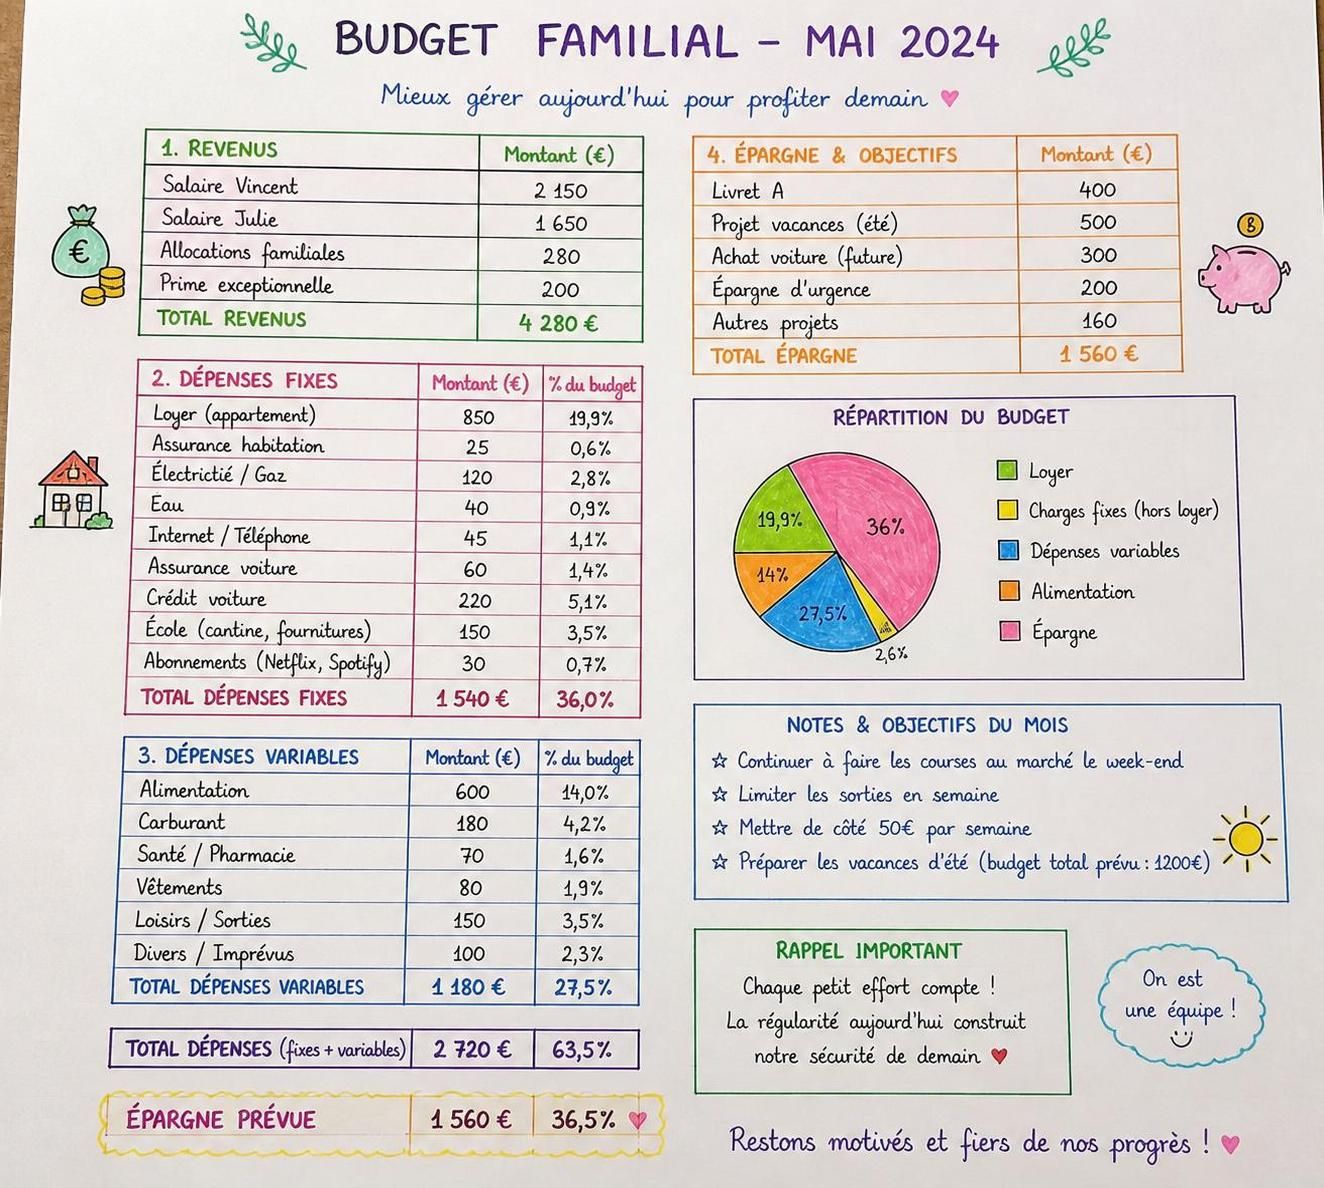 BUDGET FAMILIAL – MAI 2024
Mieux gérer aujourd'hui pour profiter demain
1. REVENUS Montant (€)
Salaire Vincent 2 150
Salaire Julie 1 650
Allocations familiales 280
Prime exceptionnelle 200
TOTAL REVENUS 4 280 €
€
2. DÉPENSES FIXES Montant (€) % du budget
Loyer (appartement) 850 19,9%
Assurance habitation 25 0,6%
Électrictié / Gaz 120 2,8%
Eau 40 0,9%
Internet / Téléphone 45 1,1%
Assurance voiture 60 1,4%
Crédit voiture 220 5,1%
École (cantine, fournitures) 150 3,5%
Abonnements (Netflix, Spotify) 30 0,7%
TOTAL DÉPENSES FIXES 1 540 € 36,0%
3. DÉPENSES VARIABLES Montant (€) % du budget
Alimentation 600 14,0%
Carburant 180 4,2%
Santé / Pharmacie 70 1,6%
Vêtements 80 1,9%
Loisirs / Sorties 150 3,5%
Divers / Imprévus 100 2,3%
TOTAL DÉPENSES VARIABLES 1 180 € 27,5%
TOTAL DÉPENSES (fixes + variables) 2 720 € 63,5%
ÉPARGNE PRÉVUE 1 560 € 36,5%
4. ÉPARGNE & OBJECTIFS Montant (€)
Livret A 400
Projet vacances (été) 500
Achat voiture (future) 300
Épargne d'urgence 200
Autres projets 160
TOTAL ÉPARGNE 1 560 €
RÉPARTITION DU BUDGET
19,9%
36%
14%
27,5%
2,6%
Loyer
Charges fixes (hors loyer)
Dépenses variables
Alimentation
Épargne
NOTES & OBJECTIFS DU MOIS
☆ Continuer à faire les courses au marché le week-end
☆ Limiter les sorties en semaine
☆ Mettre de côté 50€ par semaine
☆ Préparer les vacances d'été (budget total prévu : 1200€)
RAPPEL IMPORTANT
Chaque petit effort compte !
La régularité aujourd'hui construit
notre sécurité de demain
On est
une équipe !
Restons motivés et fiers de nos progrès !